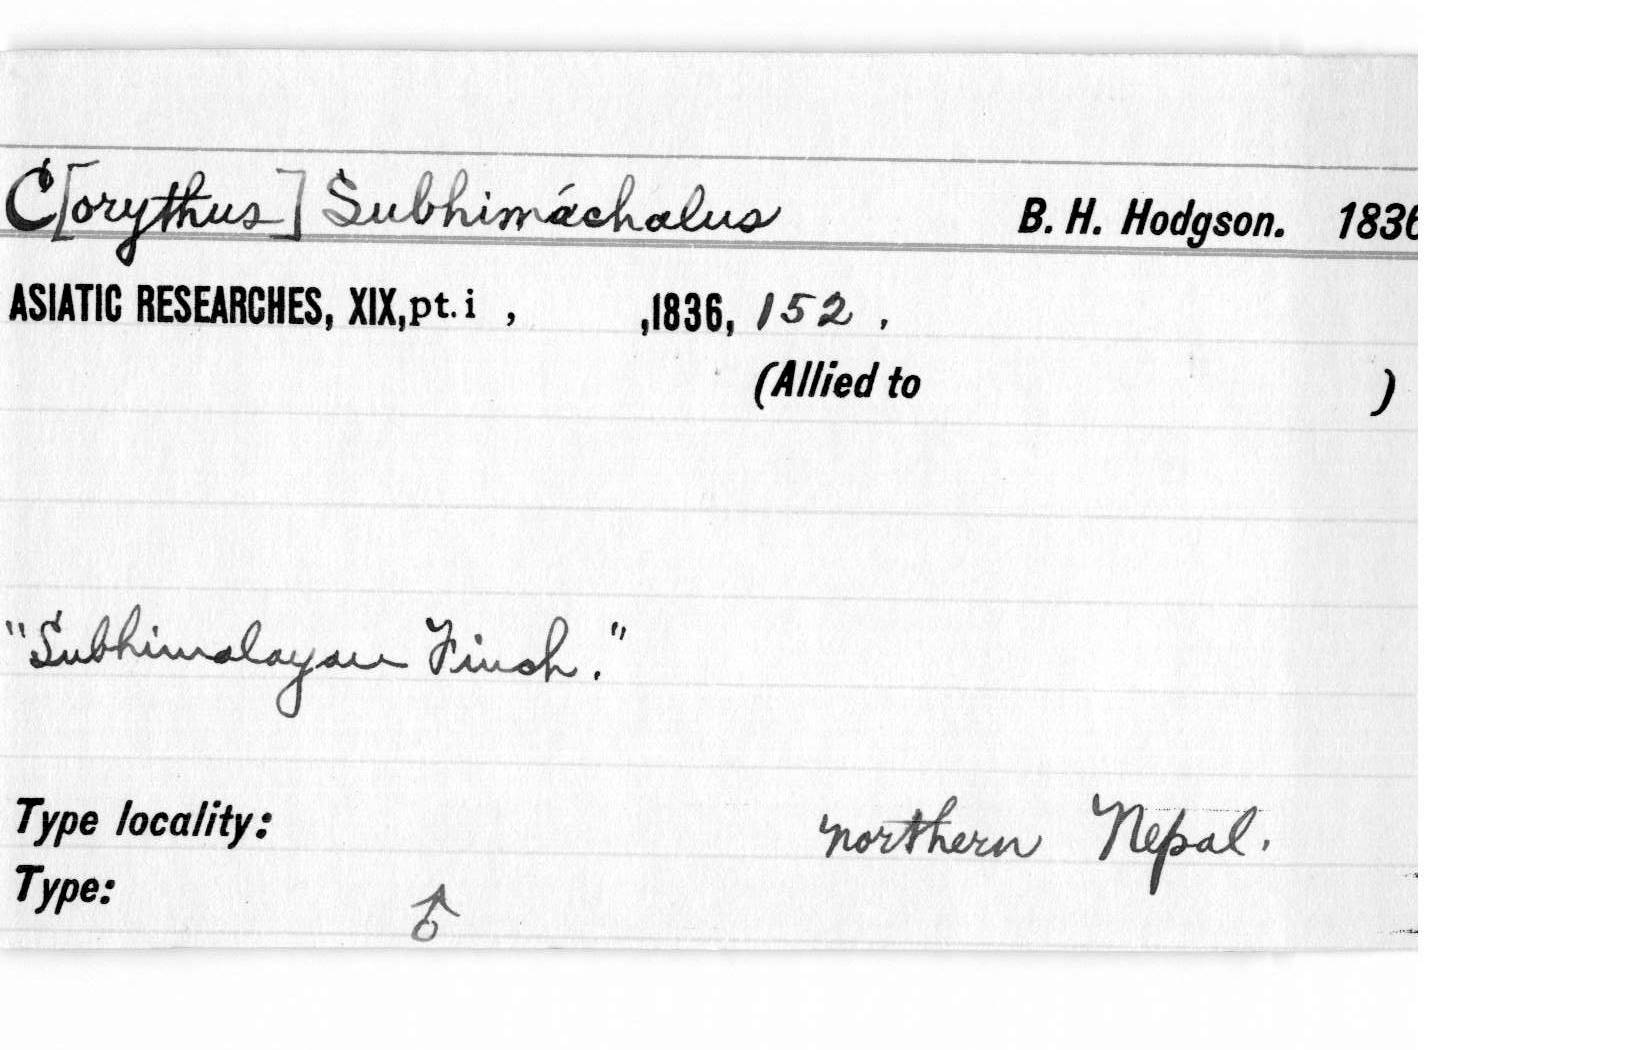 C[orythus] Subhimáchalus B. H. Hodgson. 1836
ASIATIC RESEARCHES, XIX, pt. i , ,1836, 152 .
(Allied to )
"Subhimalayan Finch."
Type locality: northern Nepal.
Type: ♂